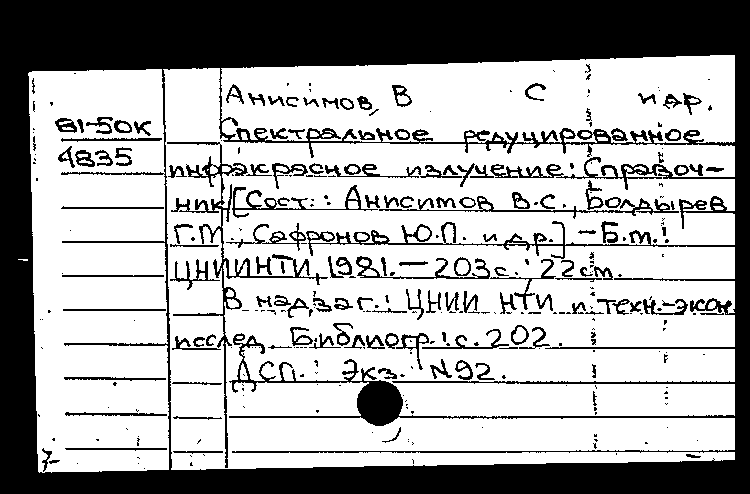 Анисимов, В С и др.
81-50К
4835
Спектральное редуцированное
инфракрасное излучение: Справоч-
ник/[Сост.: Анисимов В.С., Болдырев
Г.М., Сафронов Ю.П. и др.] - Б.м.:
ЦНИИНТИ, 1981. - 203с.; 22см.
В надзаг.: ЦНИИ НТИ и техн.-экон.
исслед. Библиогр.: с. 202.
ДСП. Экз. N92.